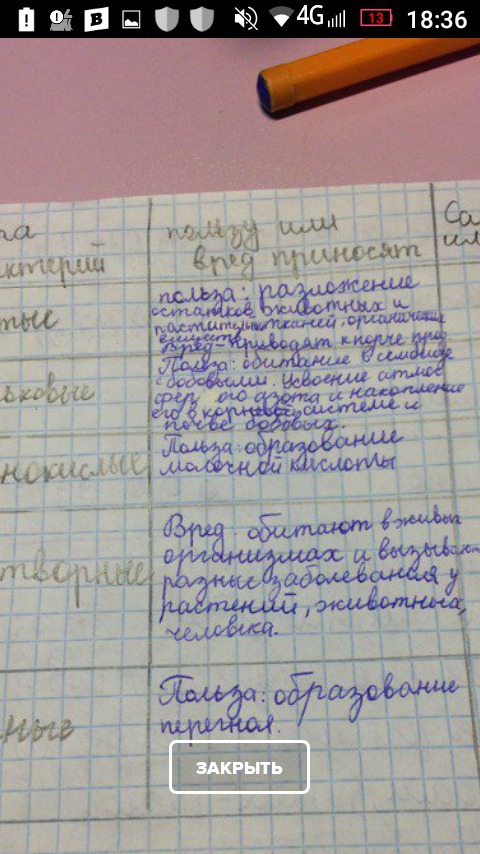 4G
13
18:36
пользу или
вред приносят
Са
ил
ктерий
польза: разложение
остатков животных и
растительн тканей, органических
Вред - приводят к порче прод
тые
Польза: обитание в семенах
бобовыми. Усвоение атмос
фер ого азота и накопление
его в корневой системе и
почве бобовых.
ьковые
Польза: образование
молочной кислоты
нокислые
Вред: обитают в живых
организмах и вызывают
разные заболевания у
растений, животных,
человека.
творные
Польза: образование
перегноя.
ные
ЗАКРЫТЬ